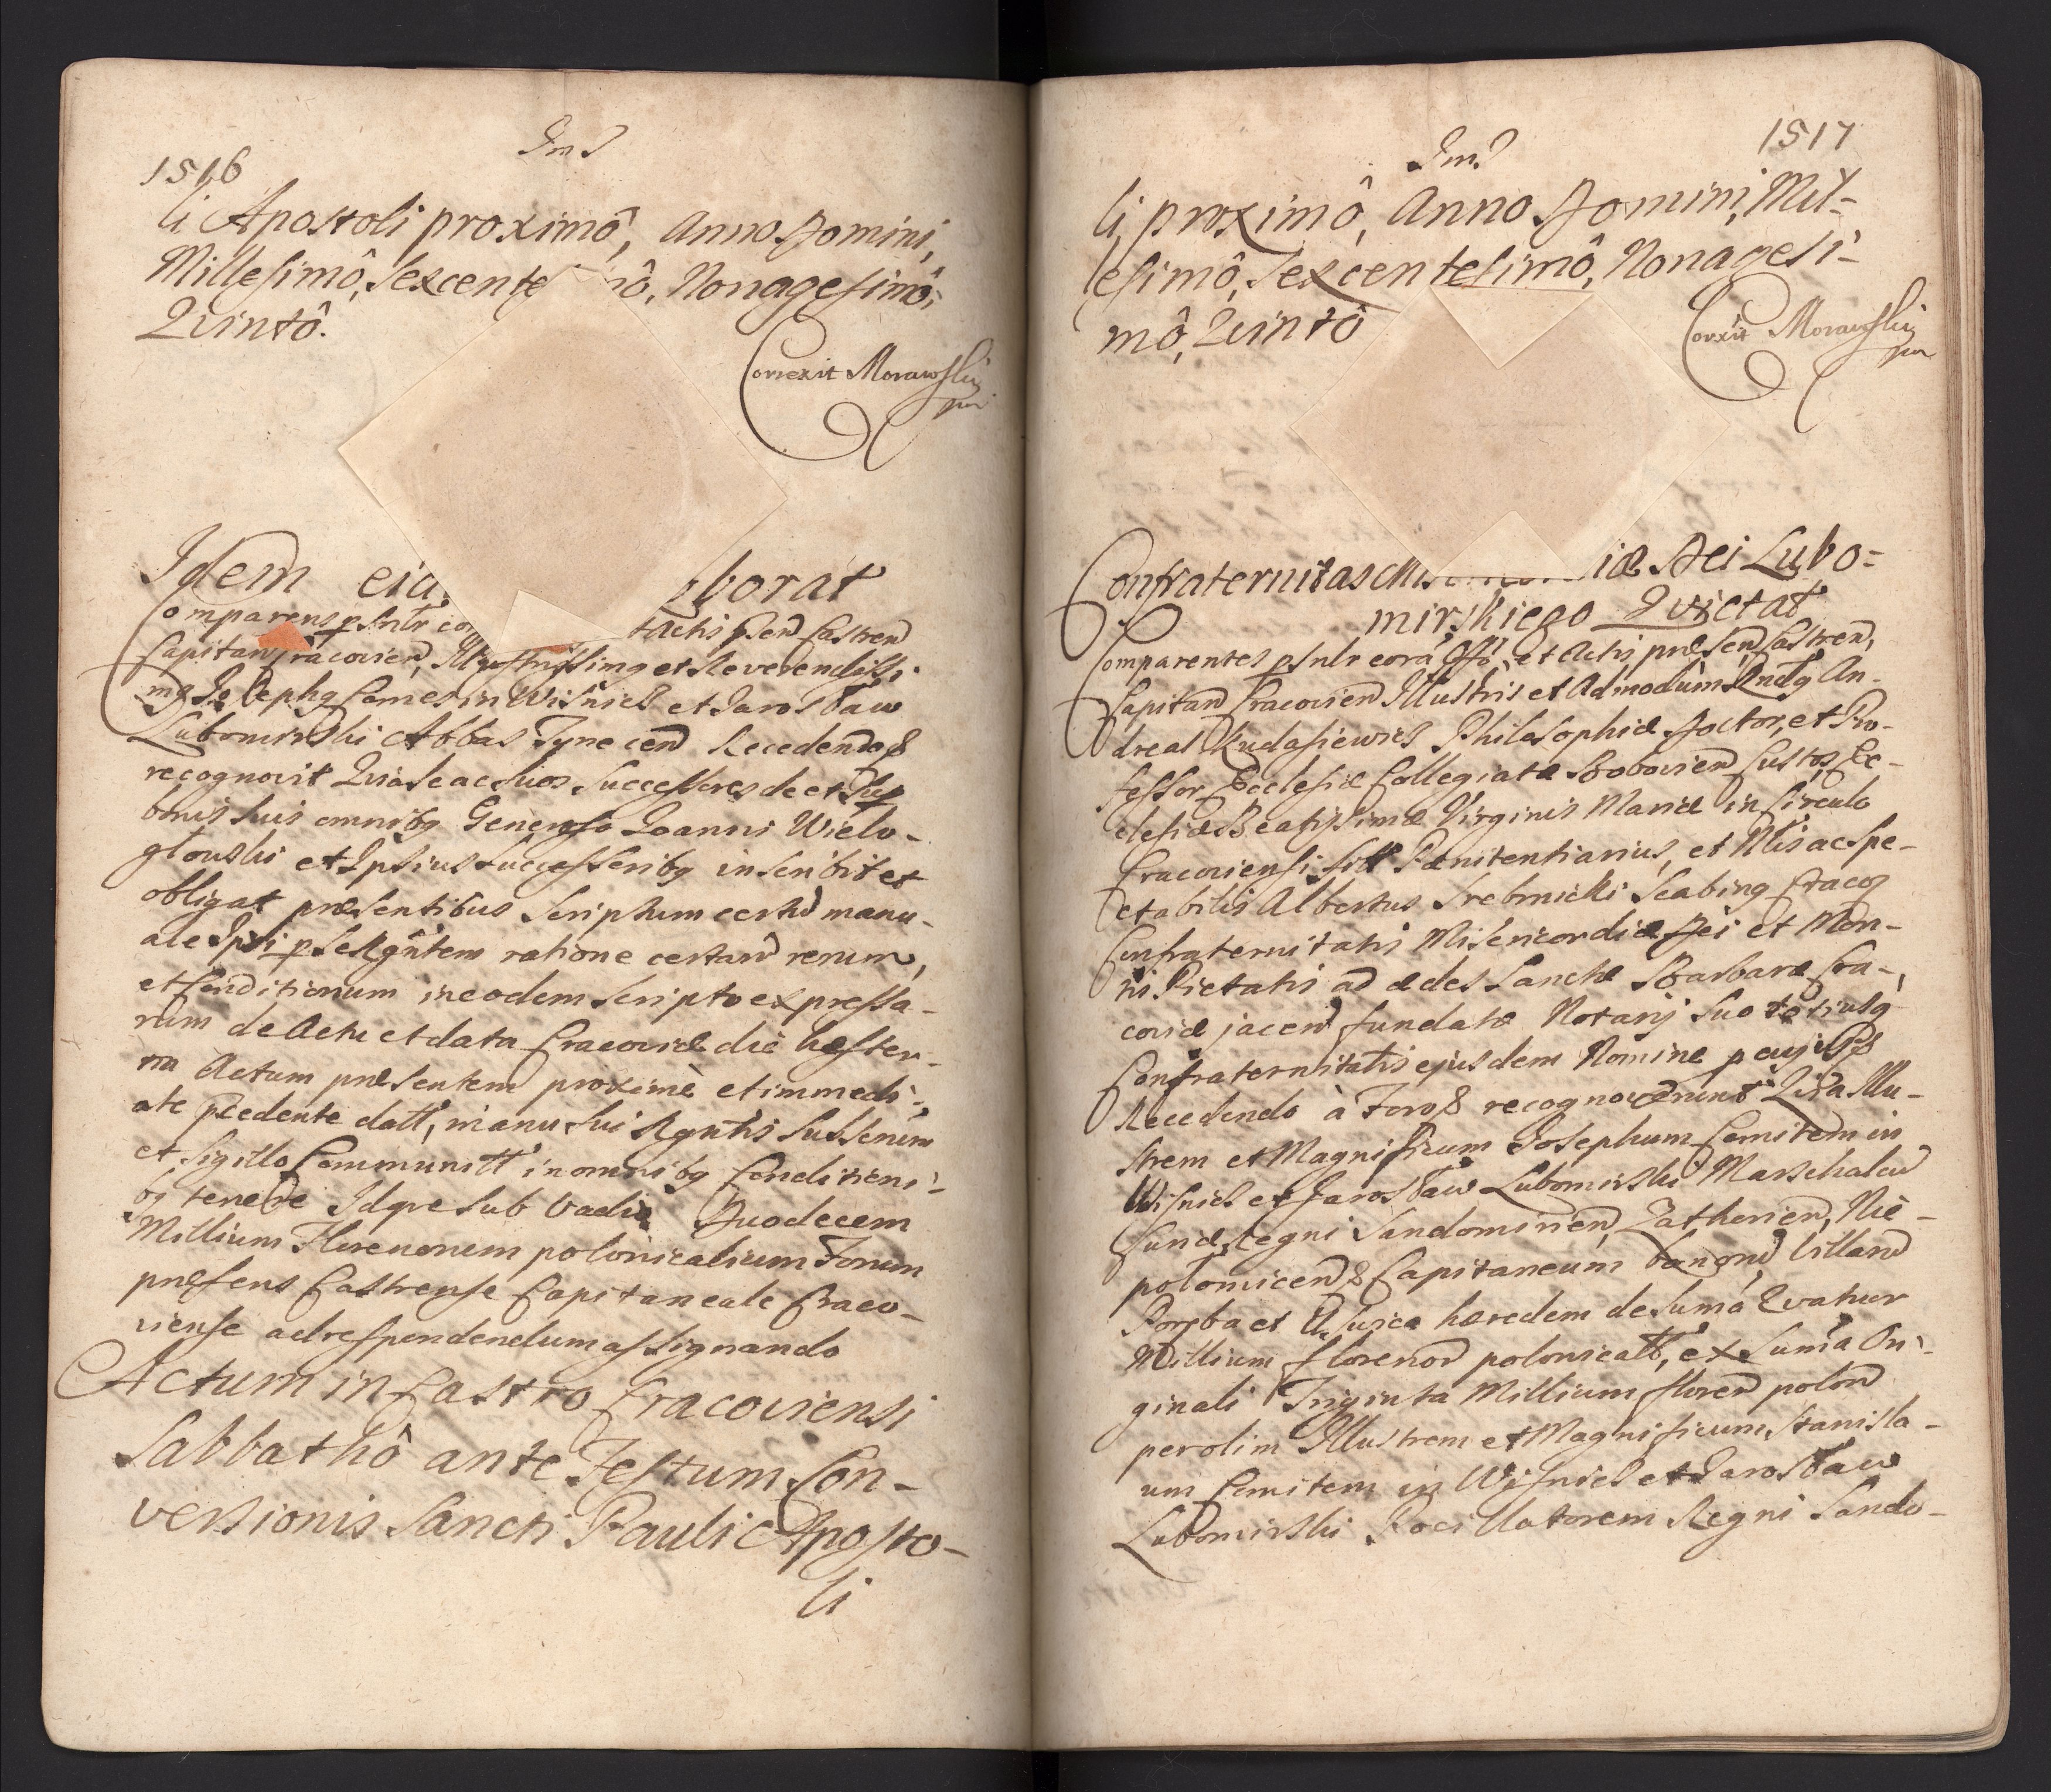 1516
Ind
li Apostoli proximô, Anno Domini,
Millesimô, Sexcente ô, Nonagesimô,
Qvintô.
Correxit Morawski
mp
Idem borat
Comparens psnlr Actis psen Castren
Capitan Cracovien, Illustrissimg et Reverendissi
mg Josephg Comes in Wisnicz et Jarosław
Lubomirski Abbas Tynecen Recedendo &
recognovit Qvia se ac suos Successores de et sup
bonis suis omnibg Generoso Joanni Wielo-
głowski et Ipsius Successoribg inscribit et
obligat præsentibus Scriptum certu manu-
ale Ipsi p se Rgntem ratione certaru rerum,
et Conditionum in eodem Scripto expressa-
rum de Actu et data Cracoviæ die hester-
na Actum præsentem proximè et immedi-
ate pcedente datt, manu sui Rgntis Subscriptum
et Sigillo Communitt in omnibg Conditioni-
bg tenere Idqve sub vadio Duodecem
Millium Florenorum polonicalium Forum
præsens Castrense Capitaneale Craco-
viense ad respondendum assignando
Actum in Castro Cracoviensi
Sabbathô ante Festum Con-
versionis Sancti Pauli Aposto-
li
1517
Ind
li proximô, Anno Domini, Mil-
lesimô, Sexcentesimô, Nonagesi-
mô, Qvintô
Corrxit Morawski
mp
Confraternitas iæ Dei Lubo-
mirskiego Qvietat
Comparentes psnlr corā Offō, et Actis præsen Castren,
Capitan Cracovien Illustris et Admodum Rndg An-
dreas Kudasiewicz Philosophiæ Doctor, et Pro-
fessor Ecclesiæ Collegiatæ Bobovien Custos, Ec-
clesiæ Beatissimæ Virginis Mariæ in Circulo
Cracoviensi Sitt Pænitentiarius, et Nlis ac Spe-
ctabilis Albertus Srebrnicki Scabing Cracov
Confraternitatis Misericordiæ Dei et Mon-
tis Pietatis ad ædes Sanctæ Barbaræ Cra-
coviæ jacen fundatæ Notarij Suo totiusq
Confraternitatis ejusdem Nomine
Recedendo à Foro & recognoverunt Qvia Illu-
strem et Magnificum Josephum Comitem in
Wisnicz et Jarosław Lubomirski Marschalcu
Curiæ Regni Sandomirien, Zathorien, Nie-
połomicen & Capitaneum bonoru Villaru
Poręba et hæredem de Sumā Qvatuor
Millium florenor polonicalt, ex Sumā Ori-
ginali Triginta Millium floren polon
per olim Illustrem et Magnificum Stanisla-
um Comitem in Wisnicz et Jarosław
Lubomirski Pocillatorem Regni Sando-